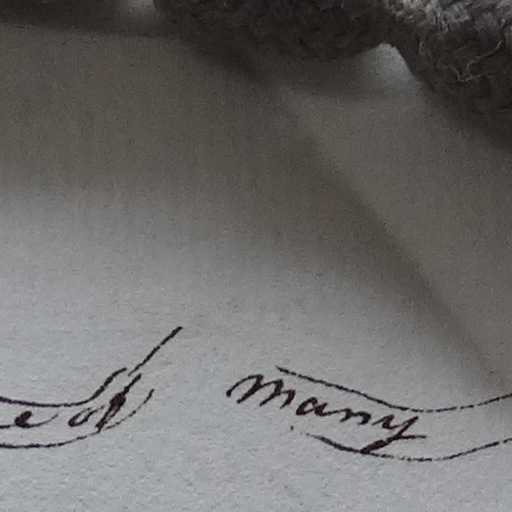 of many